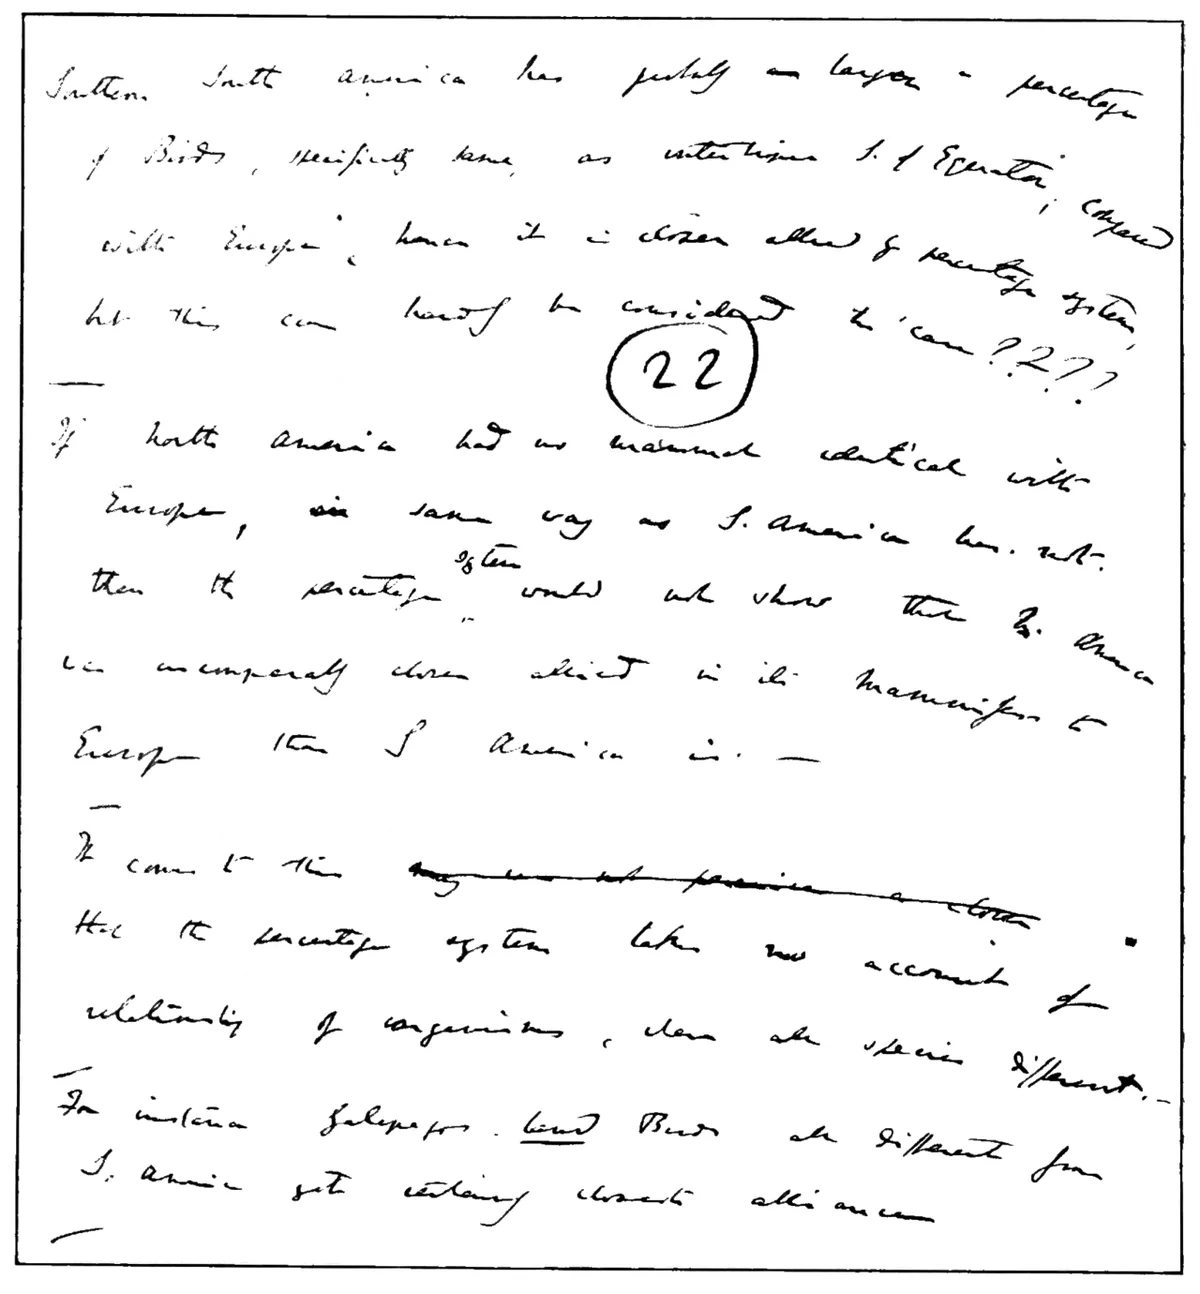 Southern South America has probably as large a percentage
of Birds, specifically same, as intertropics S. of Equator, compared
with Europe, hence it is closer allied by percentage system,
but this can hardly be considered the case????
22
If North America had no mammal identical with
Europe, in same way as S. America has not.
then the percentage system would not show that N. America
was incomparably closer allied in its Mammifers to
Europe than S America is. —
It comes to this may
that the percentage system takes no account of
relationship of organisms, when all species different. —
For instance Galapagos. land Birds all different from
S. America yet certainly closest alliance